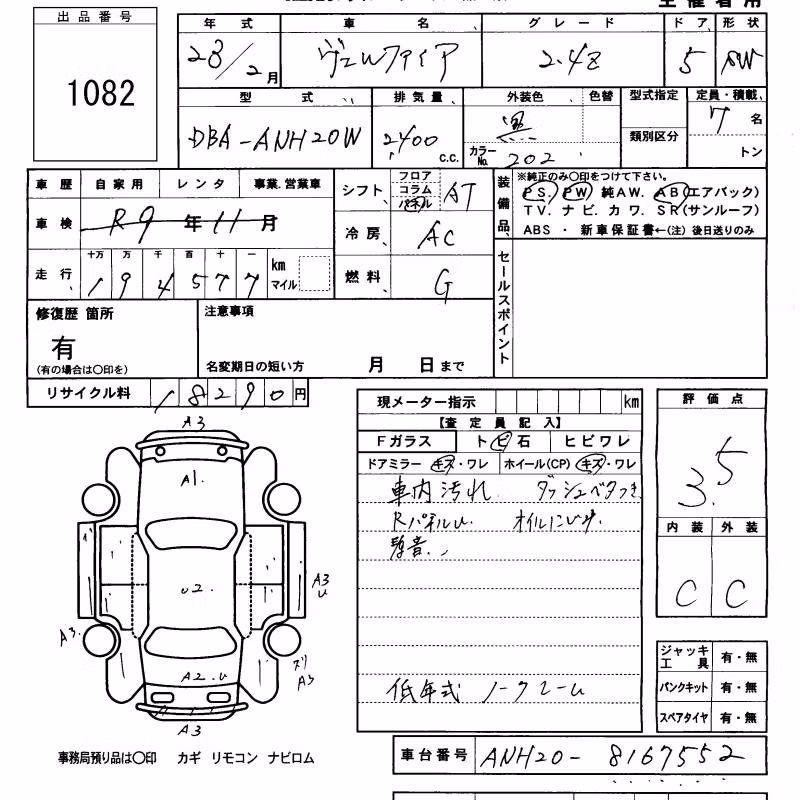 主催者用
出品番号
1082
年式 車名 グレード ドア 形状
23/2月 ヴェルファイア 2.4Z 5 SW
型式 排気量 外装色 色替 型式指定 定員・積載
DBA-ANH20W 2400 c.c. 黒 カラーNo. 202 類別区分 7名
トン
車歴 自家用 レンタ 事業.営業車
車検 R9年11月
走行 十万 万 千 百 十 一
194577 km マイル
シフト フロア コラム パネル AT
冷房 AC
燃料 G
装備品 ※純正のみ〇印をつけて下さい。
PS. PW 純AW. AB(エアバック)
TV. ナビ. カワ. SR(サンルーフ)
ABS ・ 新車保証書←(注) 後日送りのみ
セールスポイント
修復歴 箇所
有
(有の場合は〇印を)
注意事項
名変期日の短い方 月 日まで
リサイクル料 18290円
現メーター指示 km
【査定員記入】
Fガラス トビ石 ヒビワレ
ドアミラー キズ・ワレ ホイール(CP) キズ・ワレ
車内汚れ ダッシュベタつき
RパネルU. オイルにじみ.
異音.
低年式 ノークレーム
評価点
3.5
内装 外装
C C
ジャッキ工具 有・無
パンクキット 有・無
スペアタイヤ 有・無
A3
A1.
U2.
A3
U
A3.
A2.U
スリ
A3
A3
事務局預り品は〇印 カギ リモコン ナビロム
車台番号 ANH20-8167552